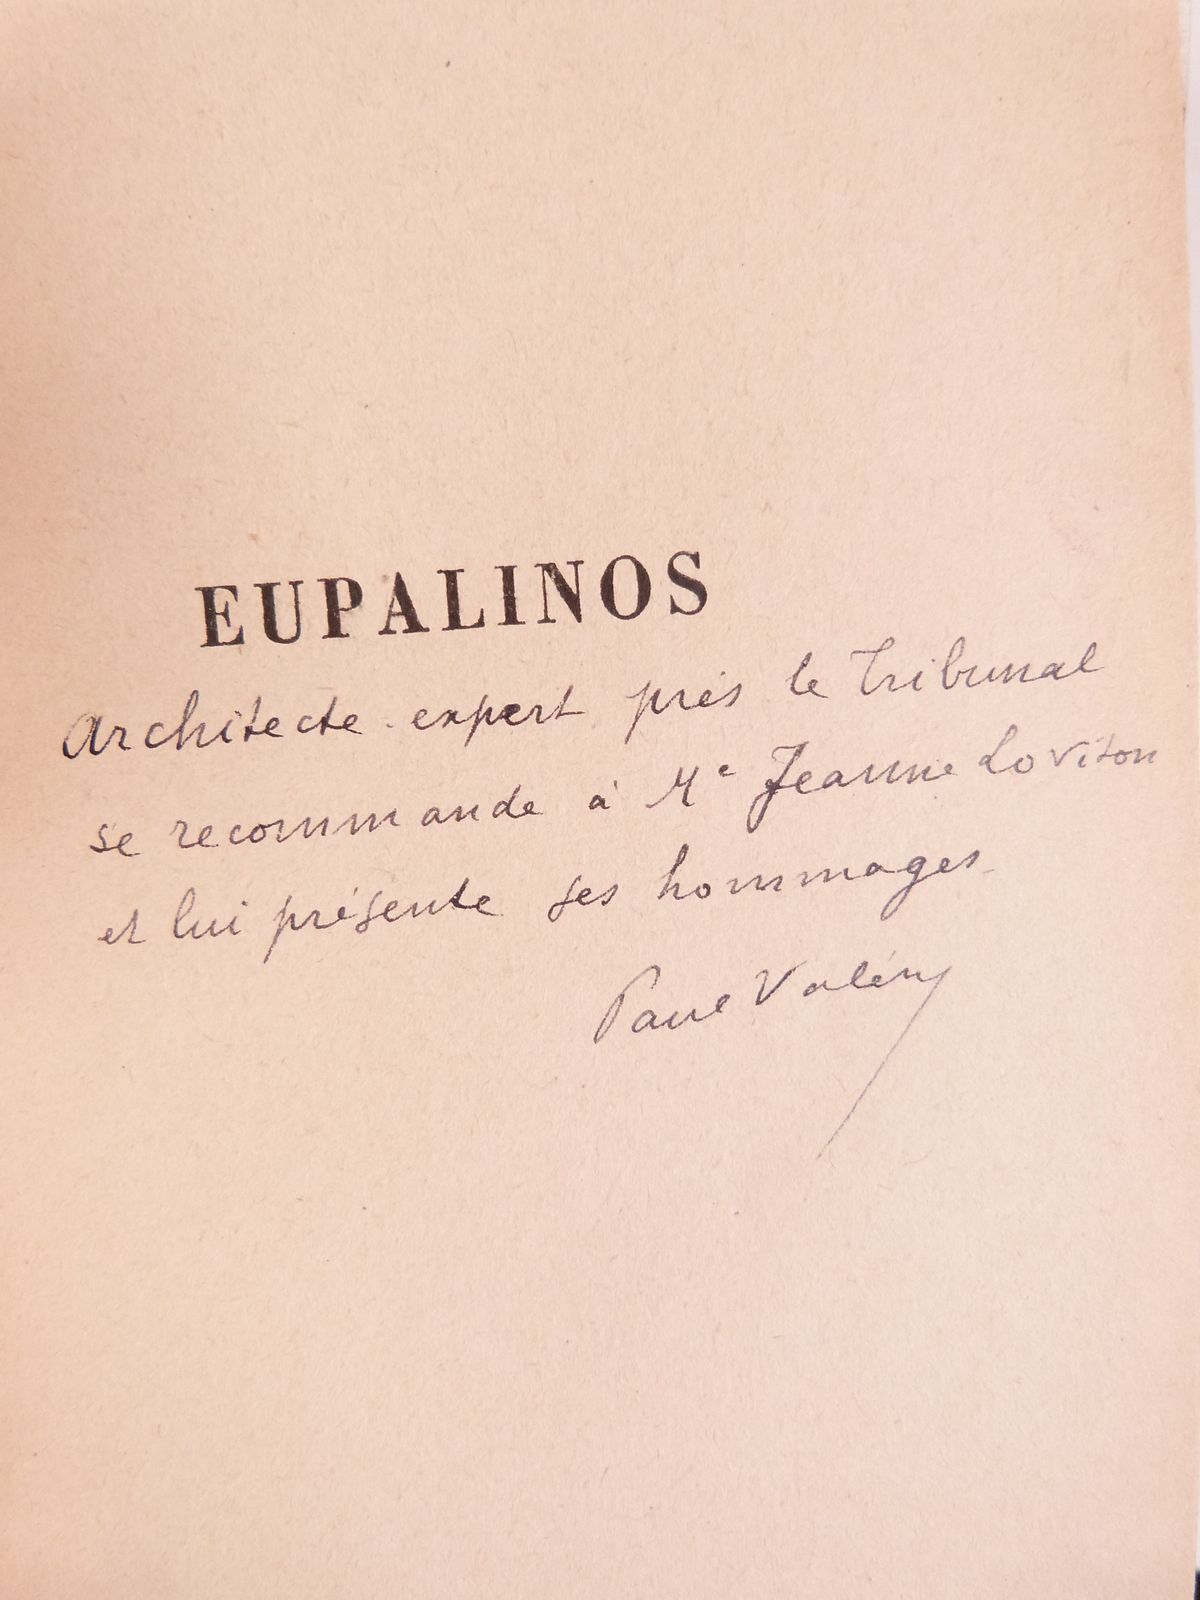 EUPALINOS
Architecte-expert près le Tribunal
se recommande à Me Jeanne Loviton
et lui présente ses hommages
Paul Valéry